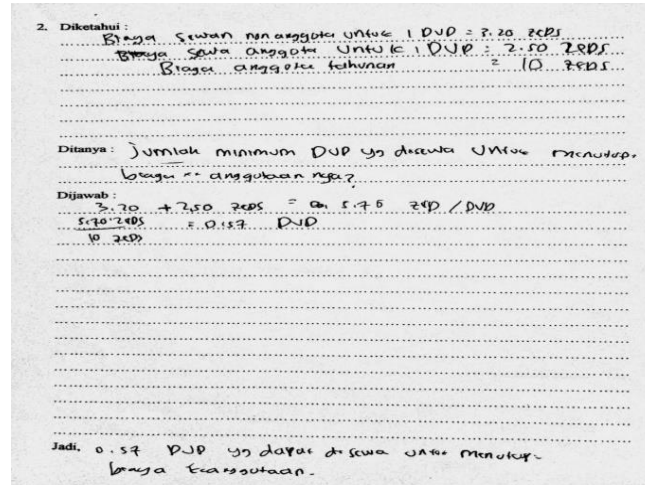 2. Diketahui :
Biaya sewan non anggota untuk 1 DVD = 3.20 zeds
Biaya sewa anggota untuk 1 DVD = 2.50 zeds
Biaya anggota tahunan = 10 zeds
Ditanya : Jumlah minimum DVD yg disewa untuk menutup.
biaya anggotaan nya?
Dijawab :
3.20 + 2,50 zeds = 5.70 zed / DVD
5.70 zeds = 0.57 DVD
10 zeds
Jadi, 0.57 DVD yg dapat disewa untuk menutup-
biaya keanggotaan.